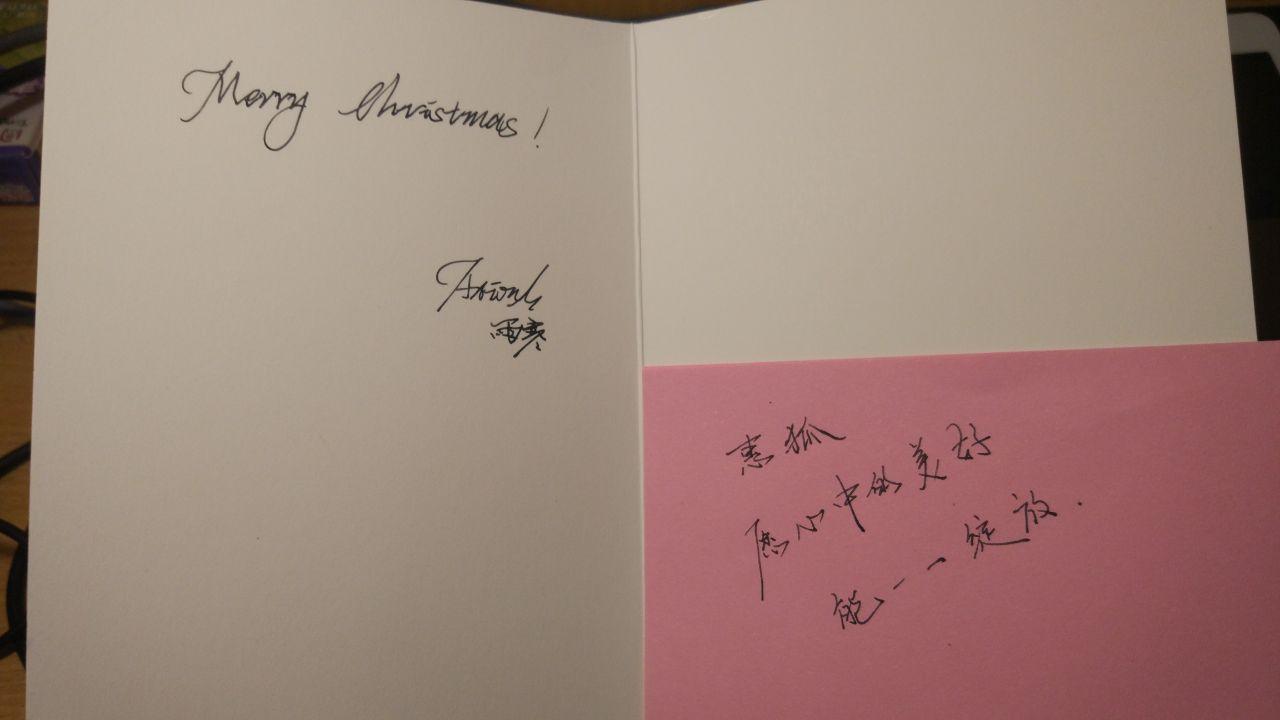 Merry Christmas!
雨寒
惠狐
愿心中的美好
能一一绽放.